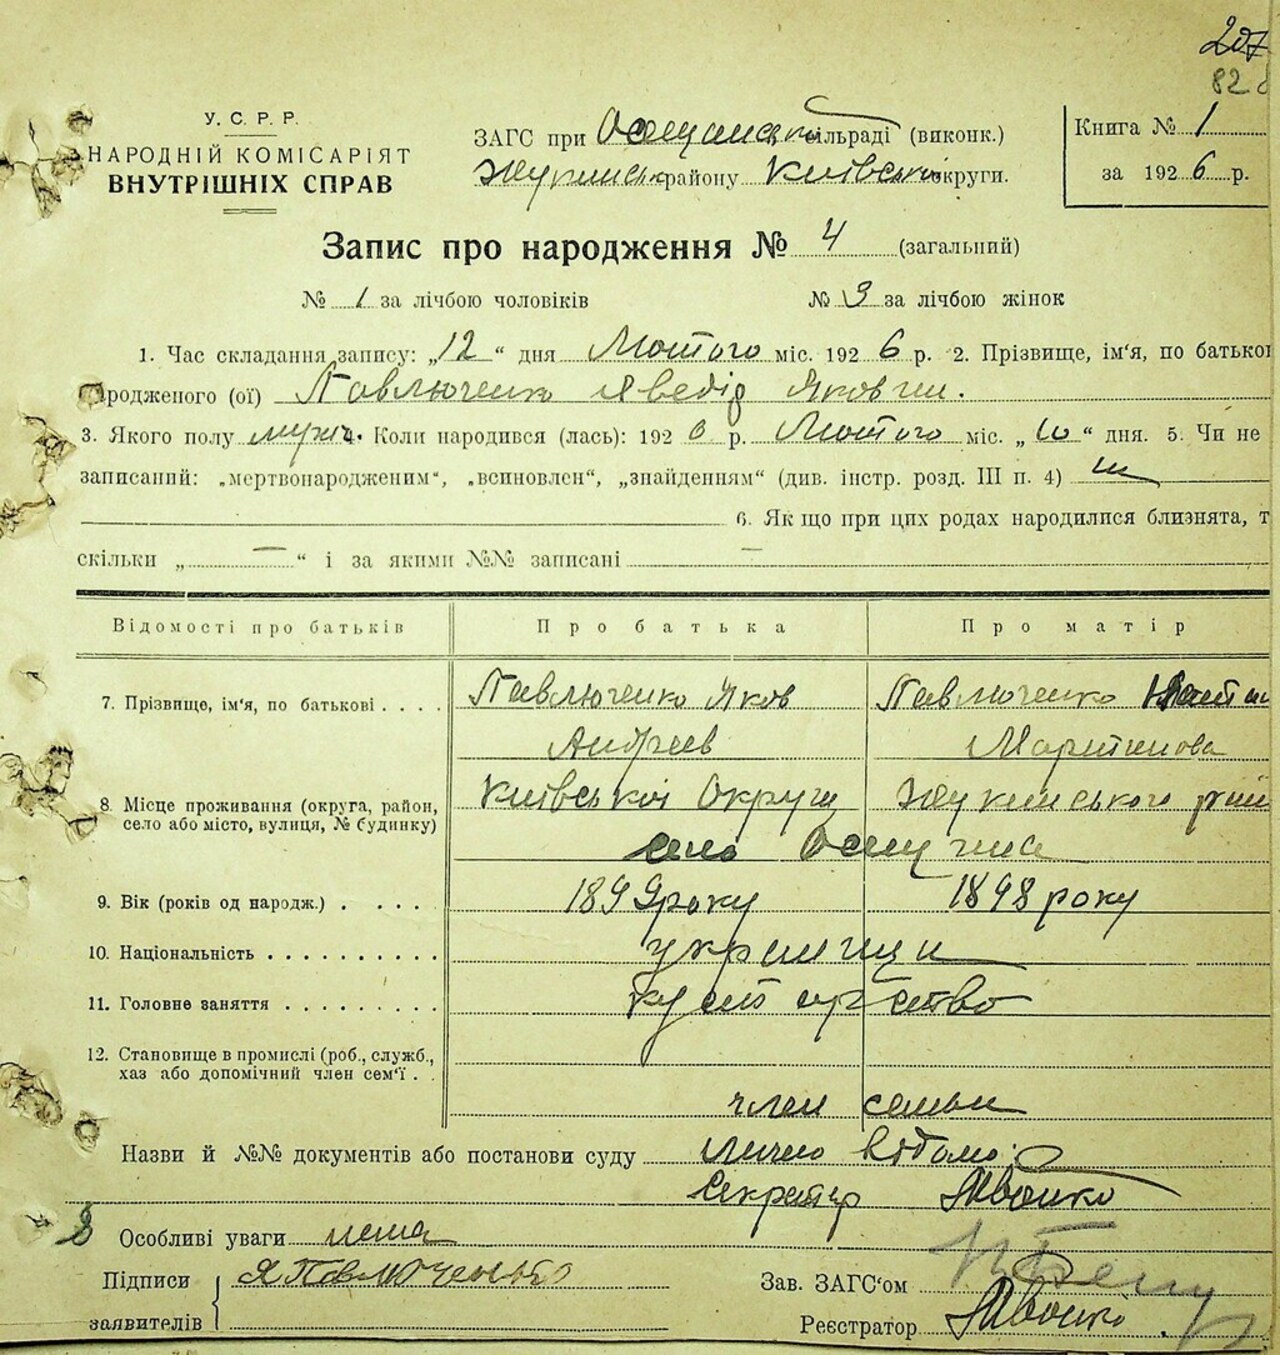 207
82
У. С. Р. Р.
НАРОДНІЙ КОМІСАРІЯТ
ВНУТРІШНІХ СПРАВ
ЗАГС при сільраді (виконк.)
району Київської округи.
Книга № 1
за 1926 р.
Запис про народження № 4 (загальний)
№ 1 за лічбою чоловіків № 3 за лічбою жінок
1. Час складання запису: „12“ дня Лютого міс. 1926 р. 2. Прізвище, ім'я, по батькові
народженого (ої) Павлюченко Якович.
3. Якого полу муж. 4. Коли народився (лась): 1926 р. Лютого міс. „10“ дня. 5. Чи не
записаний: „мертвонародженим“, „всиновлен“, „знайденням“ (див. інстр. розд. III п. 4)
6. Як що при цих родах народилися близнята, т
скільки „—“ і за якими №№ записані —
Відомості про батьків Про батька Про матір
7. Прізвище, ім'я, по батькові . . . . Павлюченко Яков Павлюченко
Андреев Мартинова
8. Місце проживання (округа, район, село або місто, вулиця, № будинку) Київської Округи Жукинського
село Осещина
9. Вік (років од народж.) . . . . . 1899 року 1898 року
10. Національність . . . . . . . . . . українци
11. Головне заняття . . . . . . . . .
12. Становище в промислі (роб., служб.,
хаз або допомічний член сем'ї . .
член семьи
Назви й №№ документів або постанови суду лично відомо
Секретар
Особливі уваги нема
Підписи Я Павлюченко
заявителів
Зав. ЗАГС'ом
Реєстратор